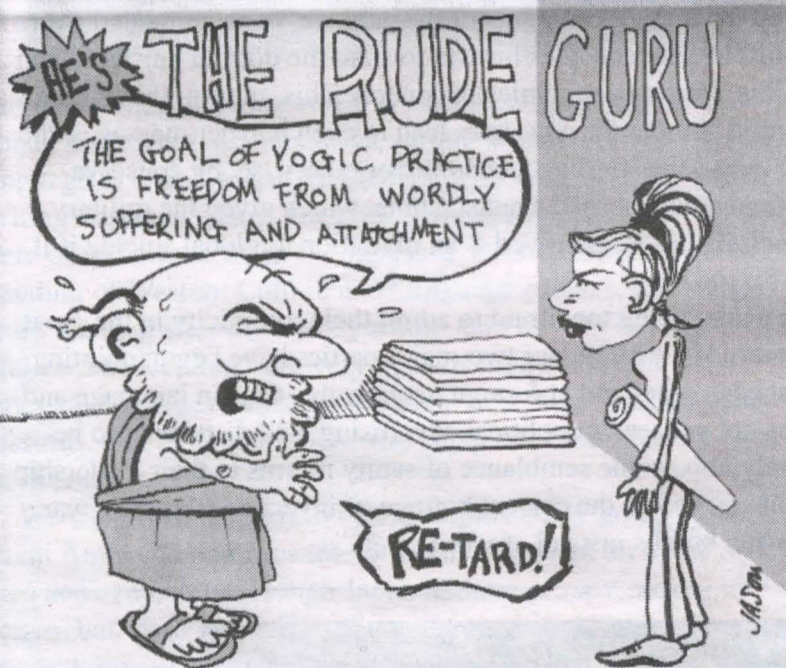 HE'S THE RUDE GURU
THE GOAL OF YOGIC PRACTICE
IS FREEDOM FROM WORDLY
SUFFERING AND ATTATCHMENT
RE-TARD!